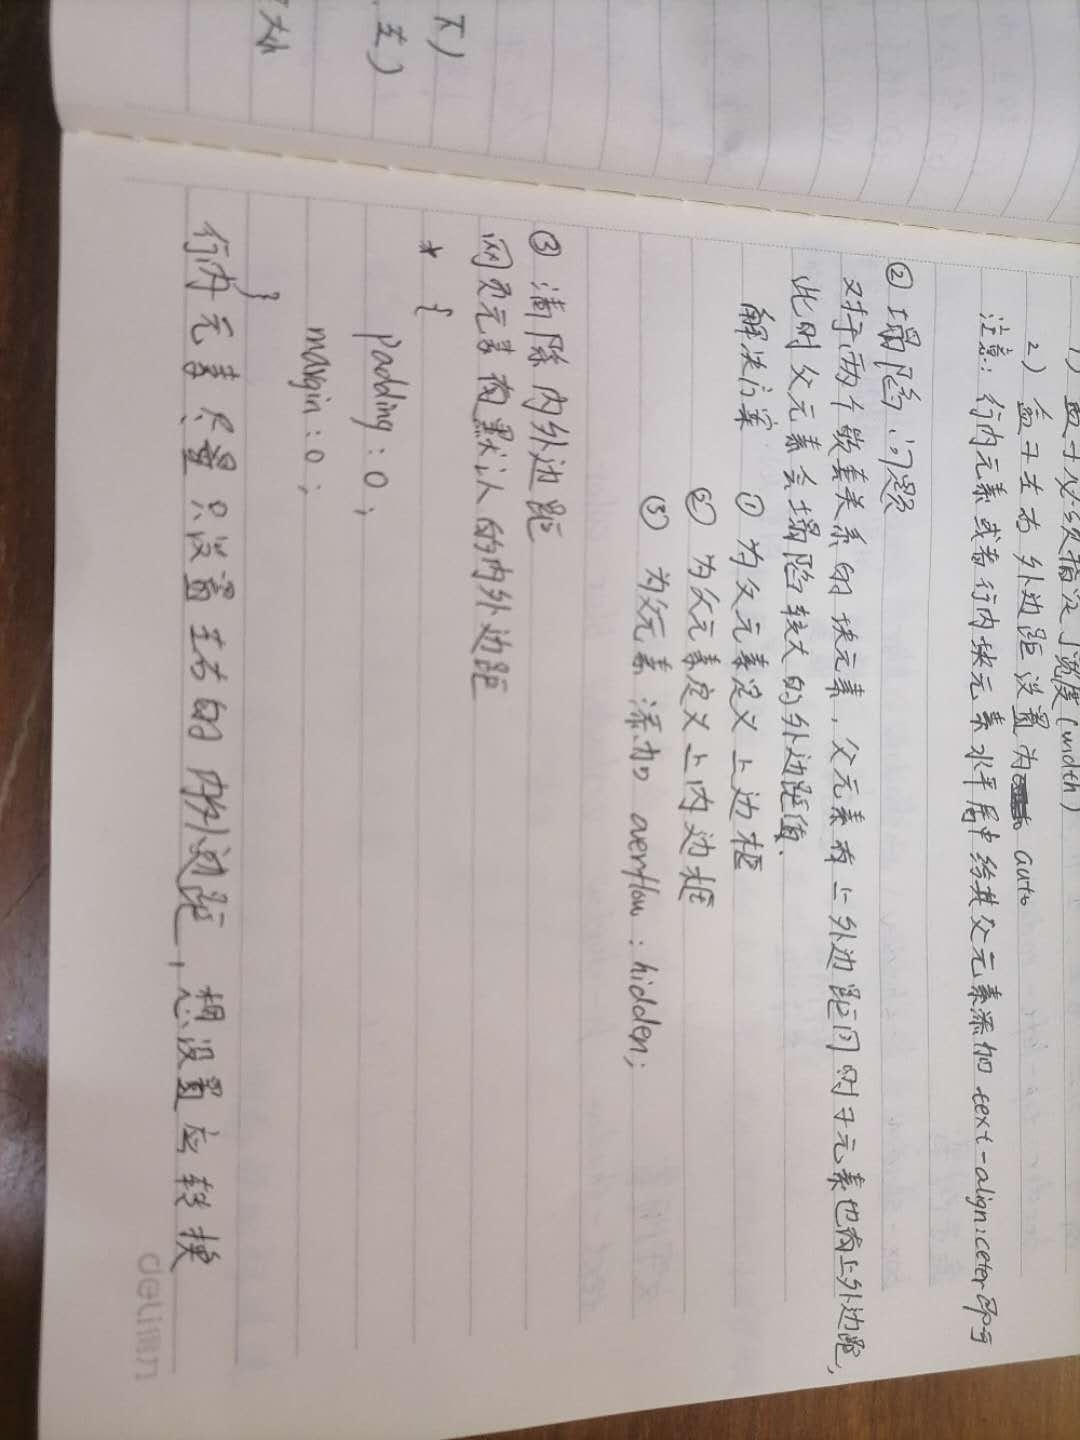 大小
下)
左)
1) 盒子必须指定了宽度(width)
2) 盒子左右外边距设置为 auto
注意: 行内元素或者行内块元素水平居中给其父元素添加 text-align:ceter即可
② 塌陷问题
对于两个嵌套关系的块元素, 父元素有上外边距同时子元素也有上外边距,
此时父元素会塌陷较大的外边距值.
解决方案 ① 为父元素定义上边框
② 为父元素定义上内边框
③ 为父元素添加 overflow : hidden;
③ 清除内外边距
网页元素有默认的内外边距
* {
padding : 0 ;
margin : 0 ;
}
行内元素尽量只设置左右的内外边距, 想设置应转换
deli